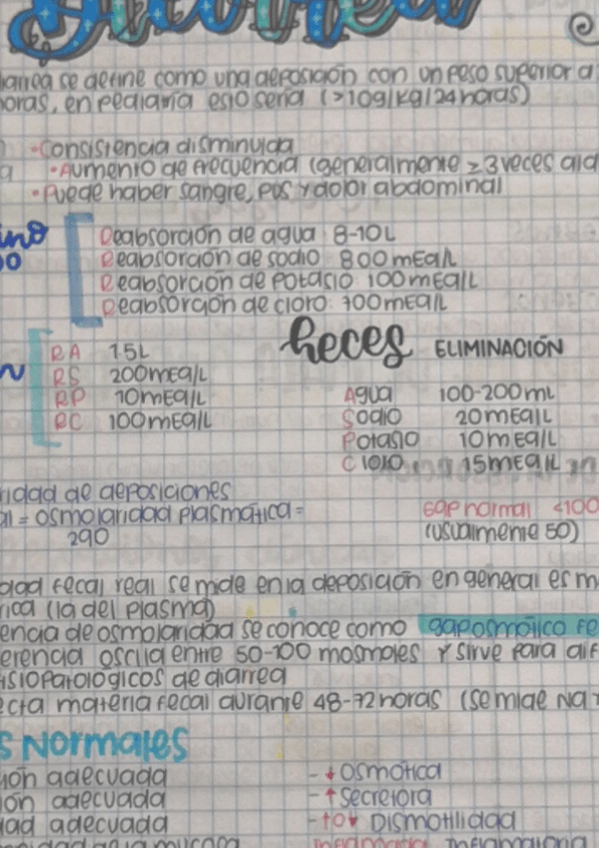 Diarrea
iarrea se define como una deposición con un peso superior a
horas, en pediatría esto sería (>10g/kg/24 horas)
•Consistencia disminuida
a •Aumento de frecuencia (generalmente ≥3 veces al d
•Puede haber sangre, pus y dolor abdominal
ino
Reabsorción de agua: 8-10L
Reabsorción de sodio: 800mEq/L
Reabsorción de potasio: 100mEq/L
Reabsorción de cloro: 700mEq/L
heces ELIMINACIÓN
RA 1.5L
RS 200mEq/L
RP 10mEq/L
RC 100mEq/L
Agua 100-200mL
Sodio 20mEq/L
Potasio 10mEq/L
Cloro 15mEq/L
ridad de deposiciones
al = osmolaridad plasmática =
290
Gap normal <100
(usualmente 50)
dad fecal real se mide en la deposición en general es m
rica (la del plasma)
encia de osmolaridad se conoce como gap osmótico fe
erencia oscila entre 50-100 mosmoles y sirve para dif
isiopatológicos de diarrea
ecta materia fecal durante 48-72 horas (se mide Na
s Normales
ión adecuada - ↓ Osmótica
ión adecuada - ↑ Secretora
dad adecuada - ↑o↓ Dismotilidad
Inflamatoria